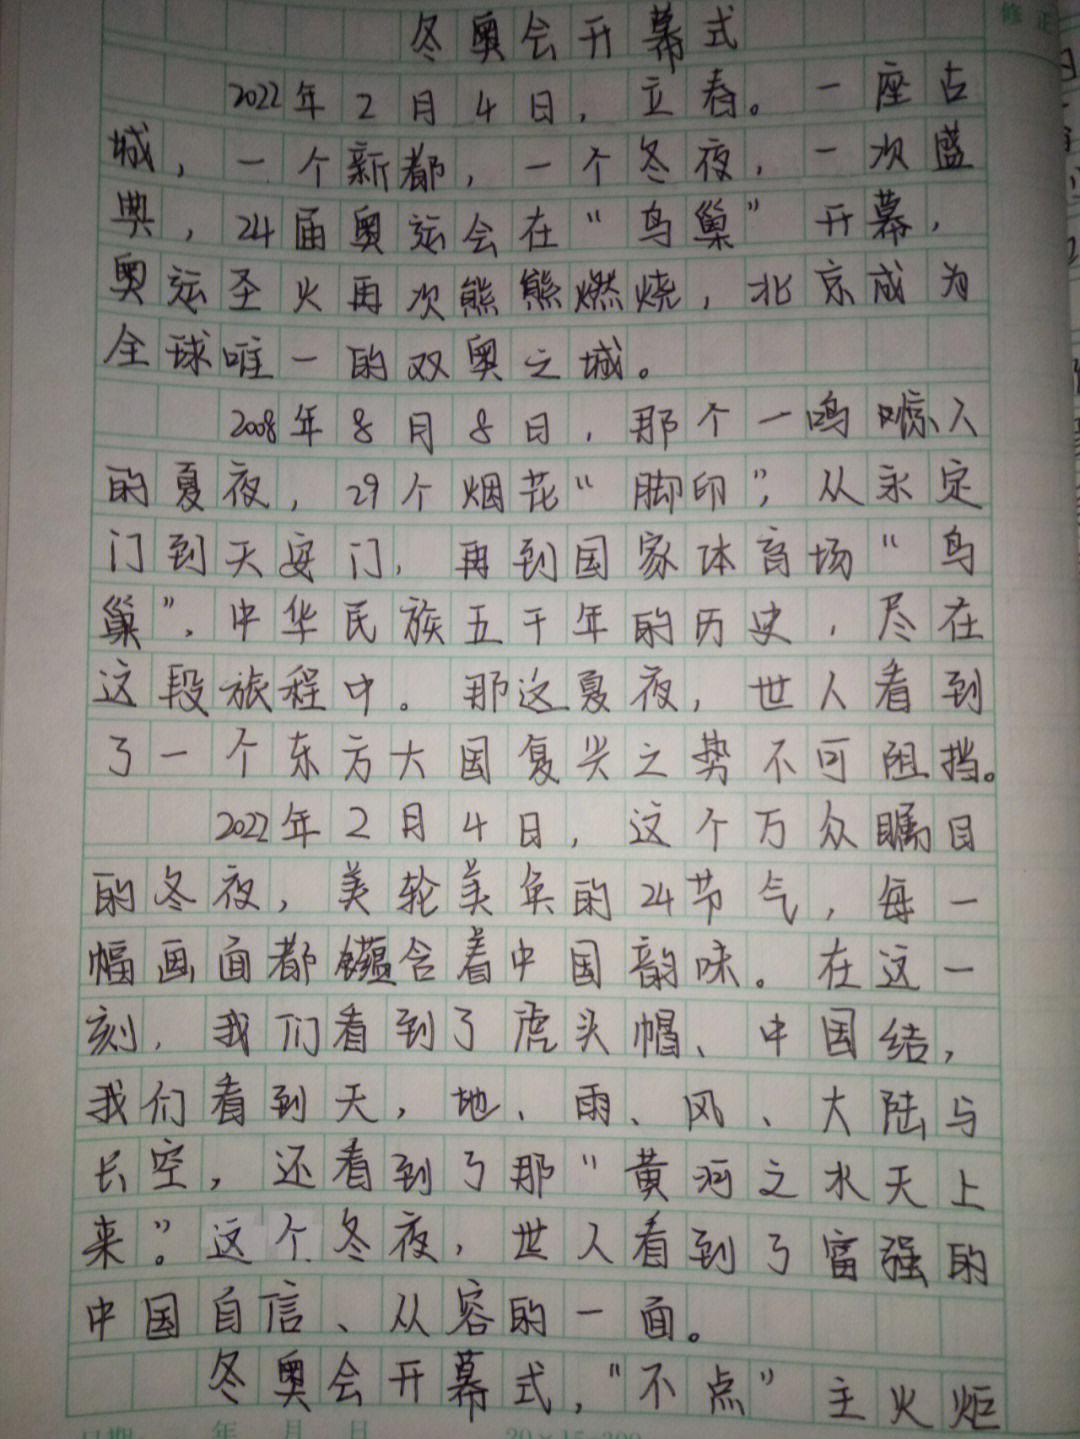 冬奥会开幕式
2022年2月4日，立春。一座古
城，一个新都，一个冬夜，一次盛
典，24届奥运会在“鸟巢”开幕，
奥运圣火再次熊熊燃烧，北京成为
全球唯一的双奥之城。
2008年8月8日，那个一鸣惊人
的夏夜，29个烟花“脚印”，从永定
门到天安门，再到国家体育场“鸟
巢”，中华民族五千年的历史，尽在
这段旅程中。那这夏夜，世人看到
了一个东方大国复兴之势不可阻挡。
2022年2月4日，这个万众瞩目
的冬夜，美轮美奂的24节气，每一
幅画面都蕴含着中国韵味。在这一
刻，我们看到了虎头帽、中国结，
我们看到天，地、雨、风、大陆与
长空，还看到了那“黄河之水天上
来”。这个冬夜，世人看到了富强的
中国自信、从容的一面。
冬奥会开幕式，“不点”主火炬
修正
日期 年 月 日 20×15=300